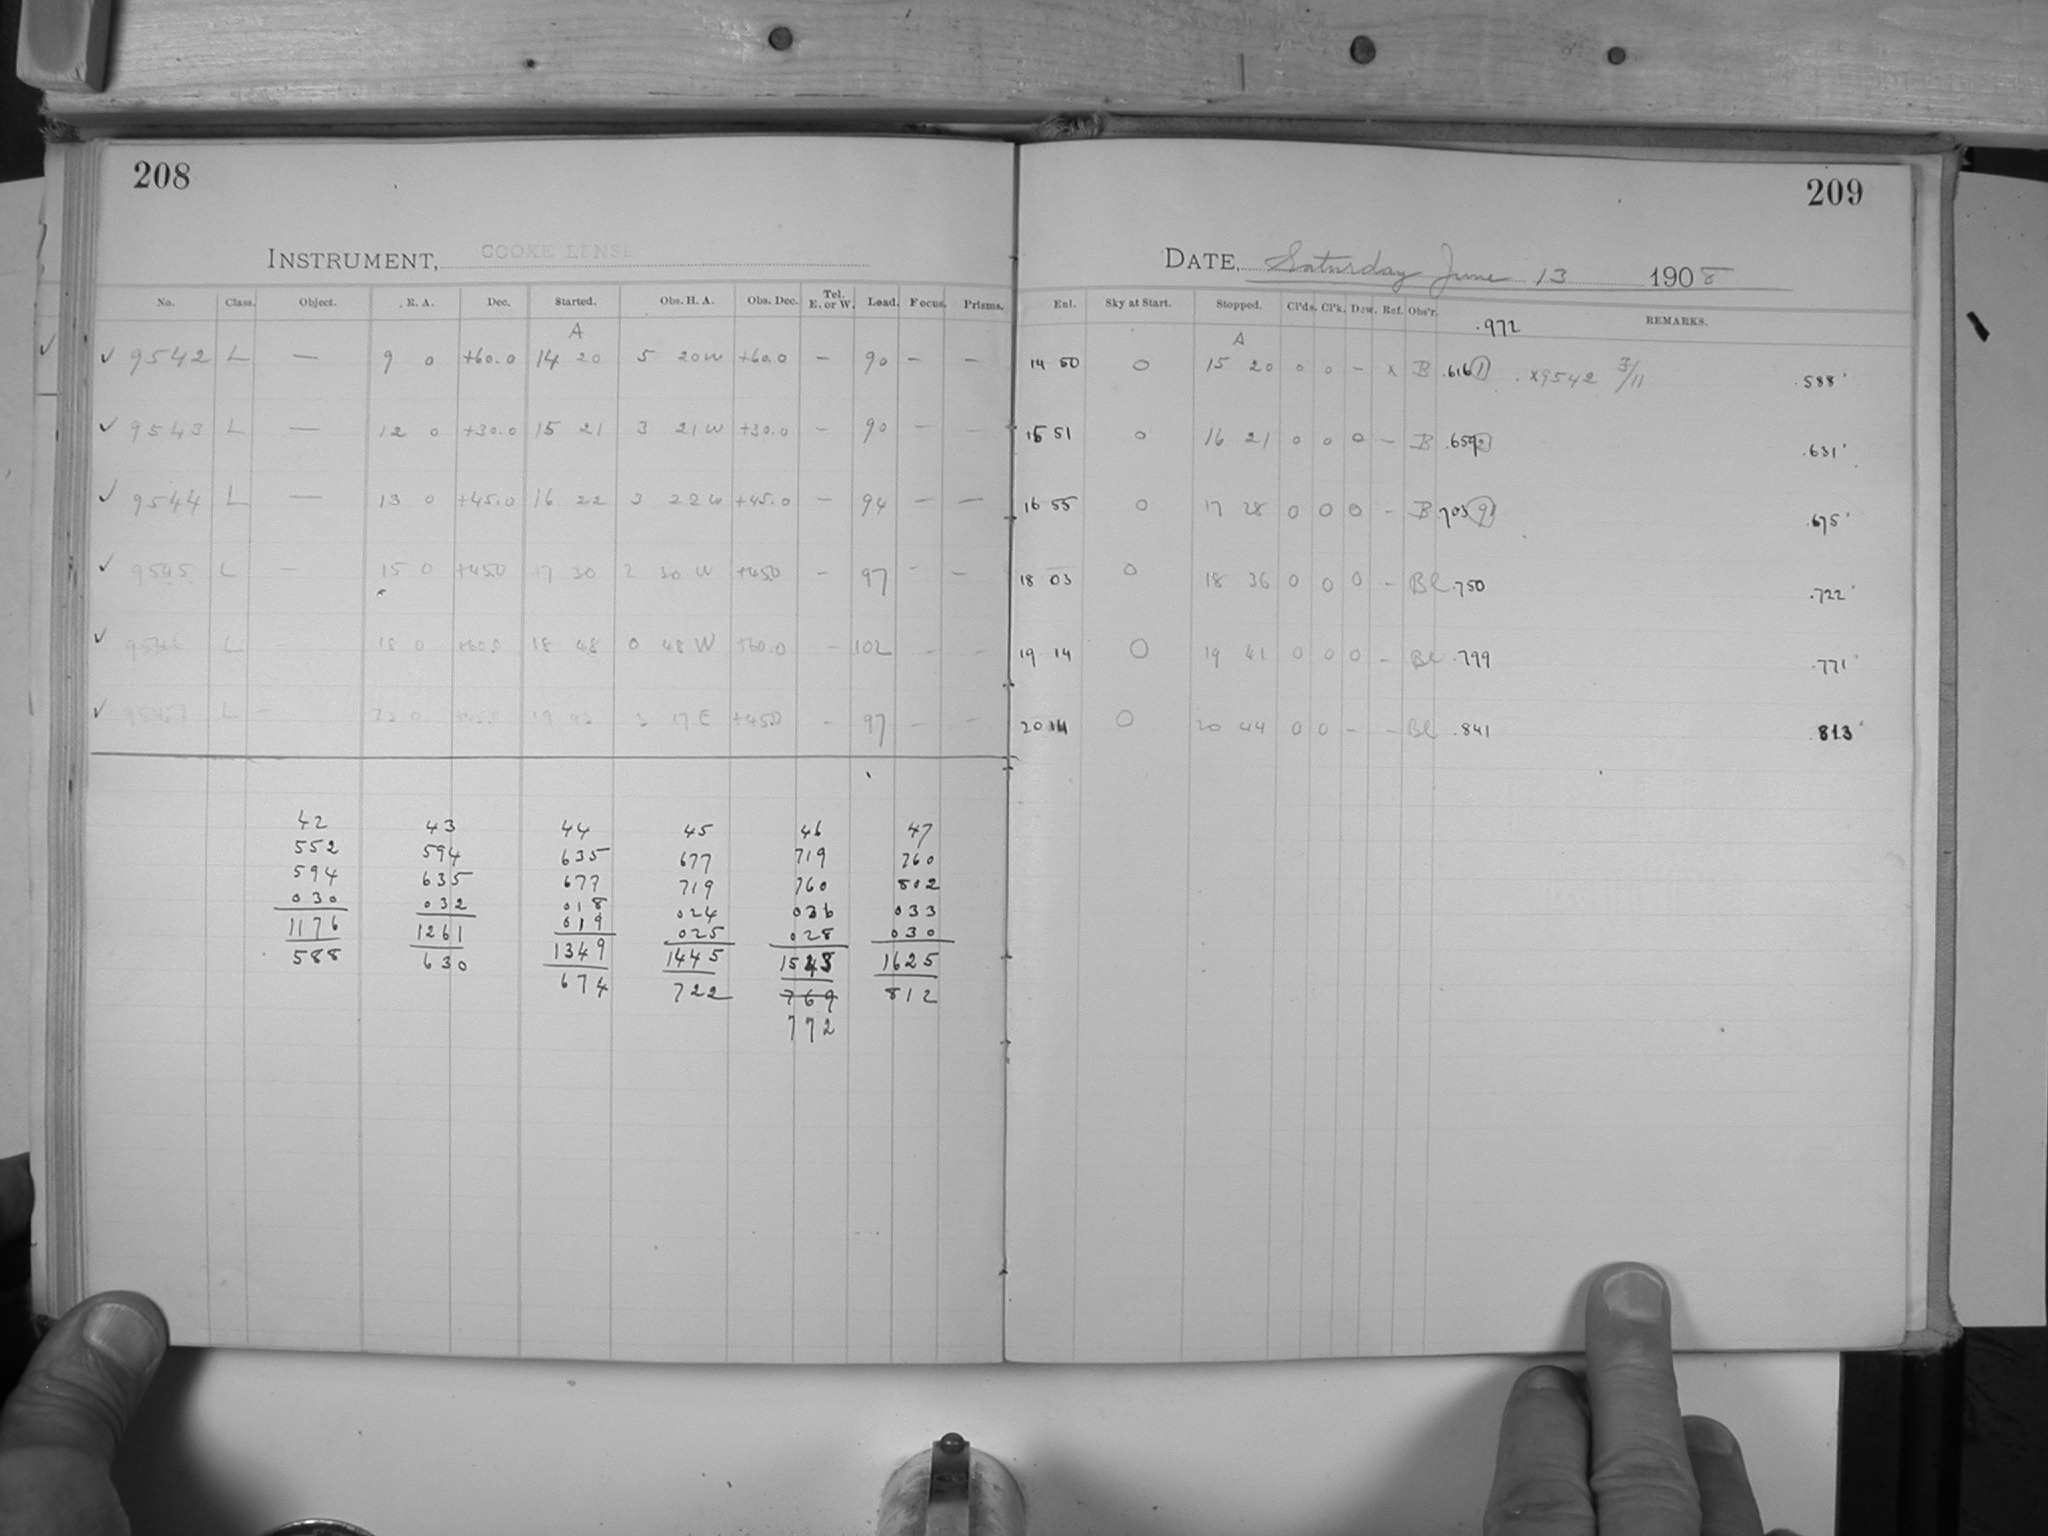 208
INSTRUMENT, COOKE LENSE
No. Class. Object. R. A. Dec. Started. Obs. H. A. Obs. Dec. Tel. E. or W. Load. Focus. Prisms.
A
✓ 9542 L — 9 0 +60.0 14 20 5 20 W +60.0 – 90 – –
✓ 9543 L — 12 0 +30.0 15 21 3 21 W +30.0 – 90 – –
✓ 9544 L — 13 0 +45.0 16 22 3 22 W +45.0 – 94 – –
✓ 9545 L — 15 0 +45.0 17 30 2 30 W +45.0 – 97 – –
✓ 9546 L – 18 0 +60.0 18 48 0 48 W +60.0 – 102 – –
✓ 9547 L – 23 0 +45.0 19 43 3 17 E +45.0 – 97 – –
42 43 44 45 46 47
552 594 635 677 719 760
594 635 677 719 760 802
030 032 018 024 036 033
019 025 028 030
1176 1261 1349 1445 1543 1625
588 630 674 722 769 812
772
209
DATE, Saturday June 13 1908
Enl. Sky at Start. Stopped. Cl'ds. Cl'k. Dew. Ref. Obs'r. REMARKS.
.972
A
14 50 0 15 20 0 0 – x B .616 1 . x9542 3/11 .588'
15 51 0 16 21 0 0 0 – B .659 2 .631'
16 55 0 17 28 0 0 0 – B .703 9 .675'
18 03 0 18 36 0 0 0 – Bl .750 .722'
19 14 0 19 41 0 0 0 – Bl .799 .771'
20 14 0 20 44 0 0 – – Bl .841 .813'